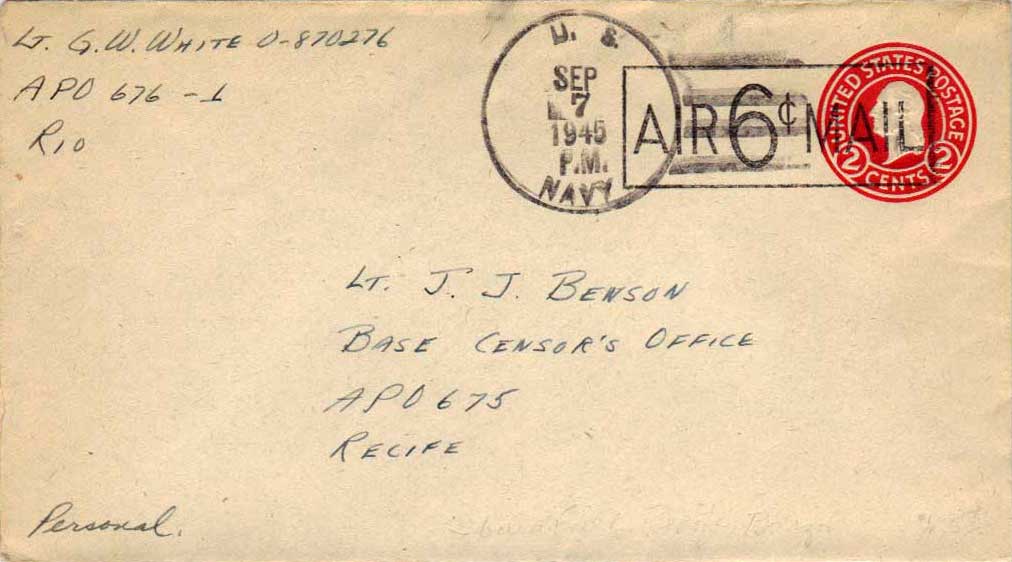 Lt. G. W. White O-870276
APO 676 -1
Rio
U. S.
SEP
7
1945
P.M.
NAVY
AIR 6¢ MAIL
UNITED STATES POSTAGE
2 CENTS 2
Lt. J. J. Benson
Base Censor's Office
APO 675
Recife
Personal.